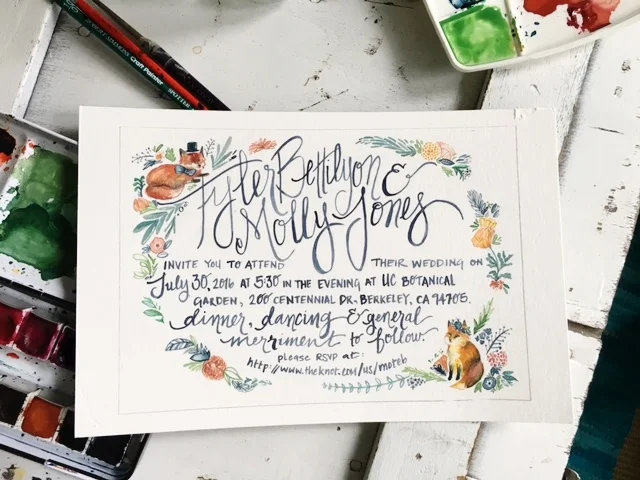 Tyler Bettilyon &
Molly Jones
INVITE YOU TO ATTEND THEIR WEDDING ON
July 30, 2016 AT 5:30 IN THE EVENING AT UC BOTANICAL
GARDEN, 200 CENTENNIAL DR. BERKELEY, CA 94705.
dinner, dancing & general
merriment to follow.
please RSVP at:
http://www.theknot.com/us/moteb
Craft Painter